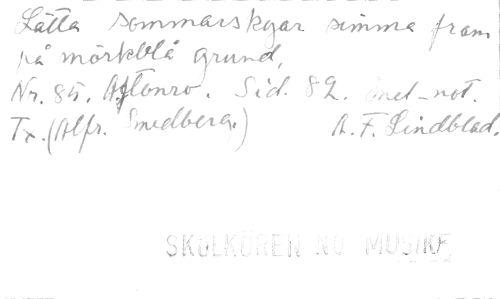 Lätta sommarskyar simma fram
på mörkblå grund,
Nr. 85. Aftonro. Sid. 82. enst. not.
Tx. (Alfr. Smedberg.) A. F. Lindblad.
SKOLKÖREN NO MUSIKF